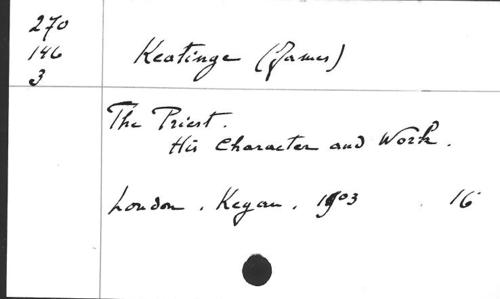 270
146
3
Keatinge (James)
The Priest.
His Character and Work.
London. Kegan. 1903 . 16